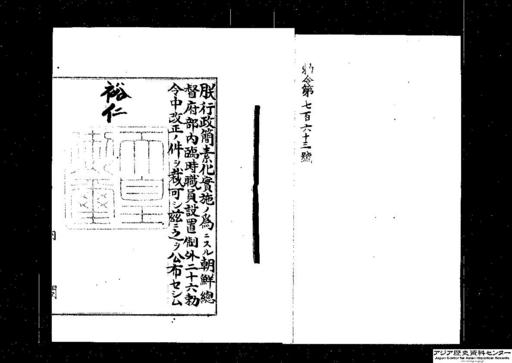 勅令第七百六十三號
朕行政簡素化實施ノ爲ニスル朝鮮總
督府部內臨時職員設置制外二十六勅
令中改正ノ件ヲ裁可シ茲ニ之ヲ公布セシム
裕仁
天皇御璽
アジア歴史資料センター
Japan Center for Asian Historical Records